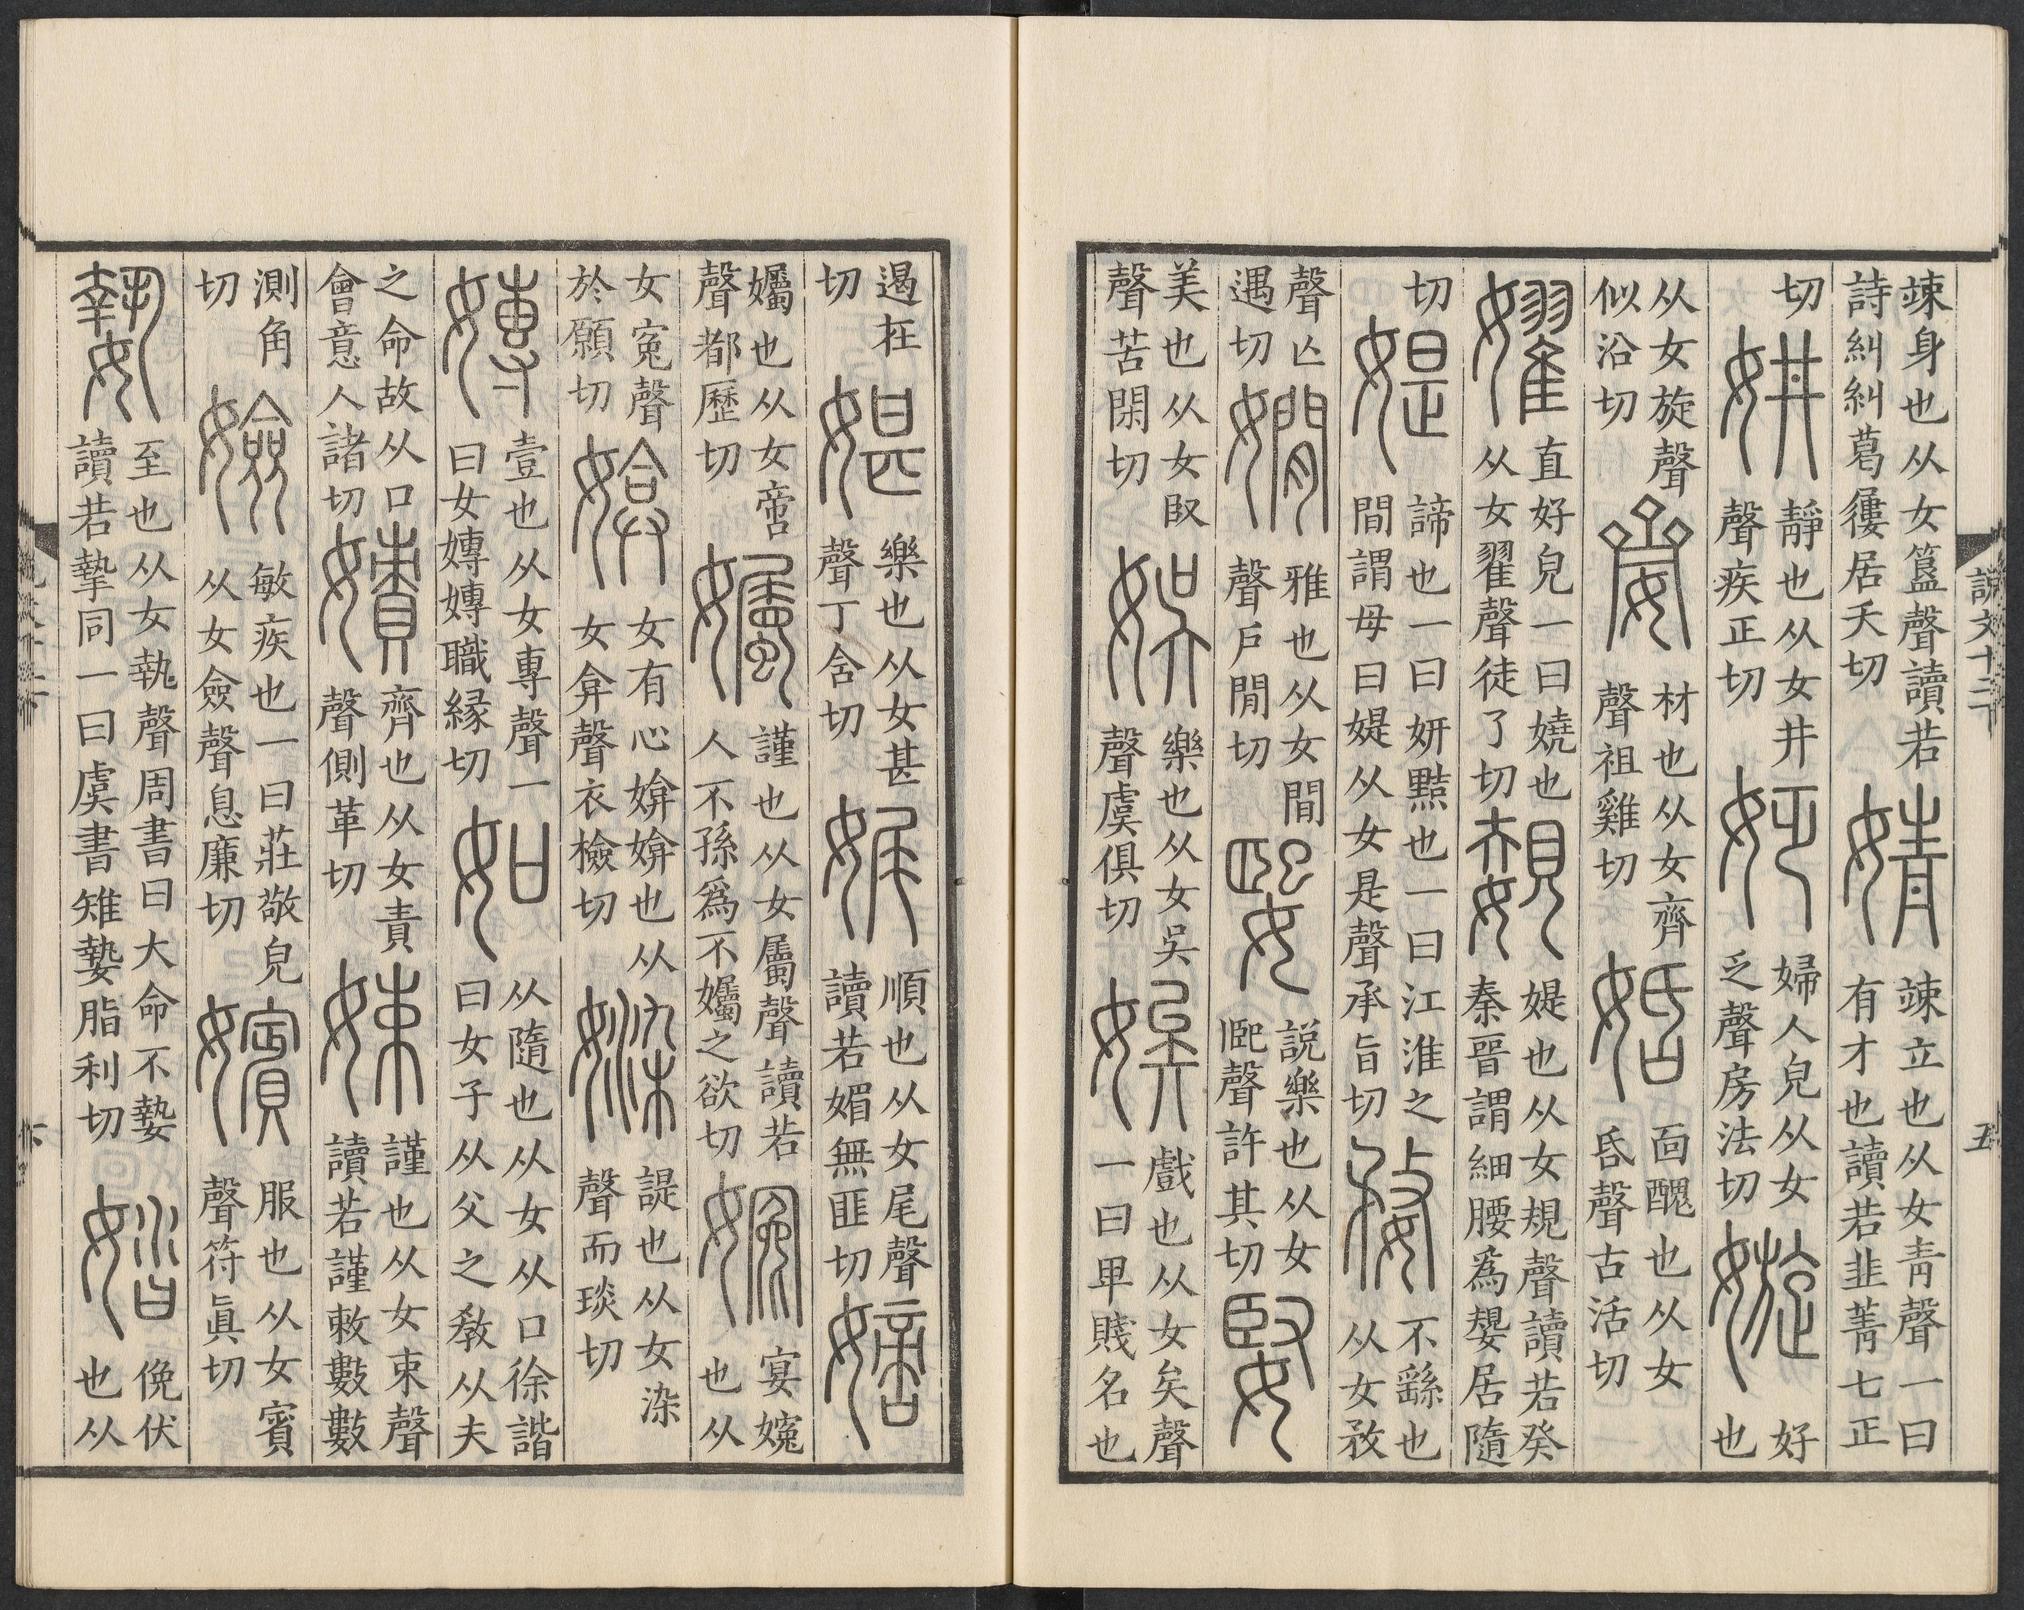 說文十二下 五
竦身也从女簋聲讀若詩糾糾葛屨居夭切 婧 竦立也从女青聲一曰有才也讀若韭菁七正
切 妌 靜也从女井聲疾正切 姂 婦人皃从女乏聲房法切 嫙 好也
从女旋聲似沿切 齌 材也从女齊聲祖雞切 姡 面醜也从女昏聲古活切
嬥 直好皃一曰嬈也从女翟聲徒了切 嫢 媞也从女規聲讀若癸秦晉謂細腰爲嫢居隨
切 媞 諦也一曰妍黠也一曰江淮之間謂母曰媞从女是聲承旨切 婺 不繇也从女敄
聲亾遇切 嫺 雅也从女閒聲戶閒切 媐 說樂也从女巸聲許其切 婜
美也从女臤聲苦閑切 娛 樂也从女吳聲虞俱切 娭 戲也从女矣聲一曰卑賤名也
遏在切 媅 樂也从女甚聲丁含切 娓 順也从女尾聲讀若媚無匪切 嫡
孎也从女啻聲都歷切 孎 謹也从女屬聲讀若人不孫爲不孎之欲切 㜶 宴㜶也从
女冤聲於願切 媕 女有心媕媕也从女弇聲衣檢切 媣 諟也从女染聲而琰切
嫥 壹也从女專聲一曰女嫥嫥職緣切 如 从隨也从女从口徐鍇曰女子从父之敎从夫
之命故从口會意人諸切 嫧 齊也从女責聲側革切 娕 謹也从女束聲讀若謹敕數數
測角切 嬐 敏疾也一曰莊敬皃从女僉聲息廉切 嬪 服也从女賓聲符眞切
𡠗 至也从女執聲周書曰大命不𡠗讀若摯同一曰虞書雉𡠗脂利切 㛥 俛伏也从